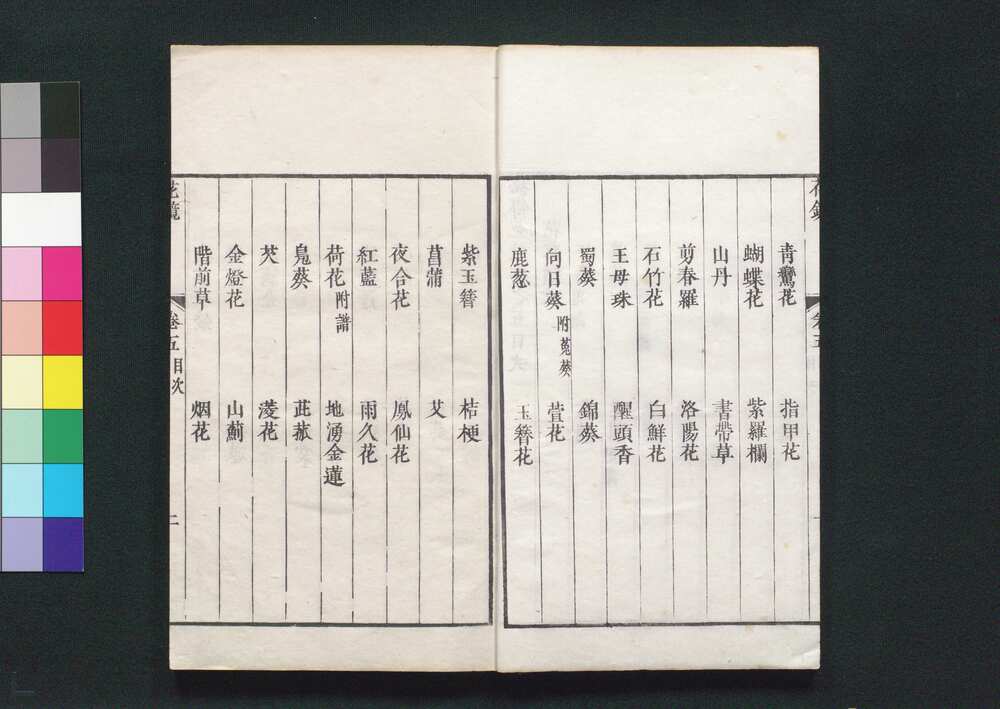 花鏡 卷五
青鸞花 指甲花
蝴蝶花 紫羅欄
山丹 書帶草
剪春羅 洛陽花
石竹花 白鮮花
王母珠 醒頭香
蜀葵 錦葵
向日葵附菟葵 萱花
鹿葱 玉簪花
紫玉簪 桔梗
菖蒲 艾
夜合花 鳳仙花
紅藍 雨久花
荷花附譜 地湧金蓮
鳧葵 茈菰
芡 蔆花
金燈花 山薊
階前草 烟花
花鏡 卷五目次 二